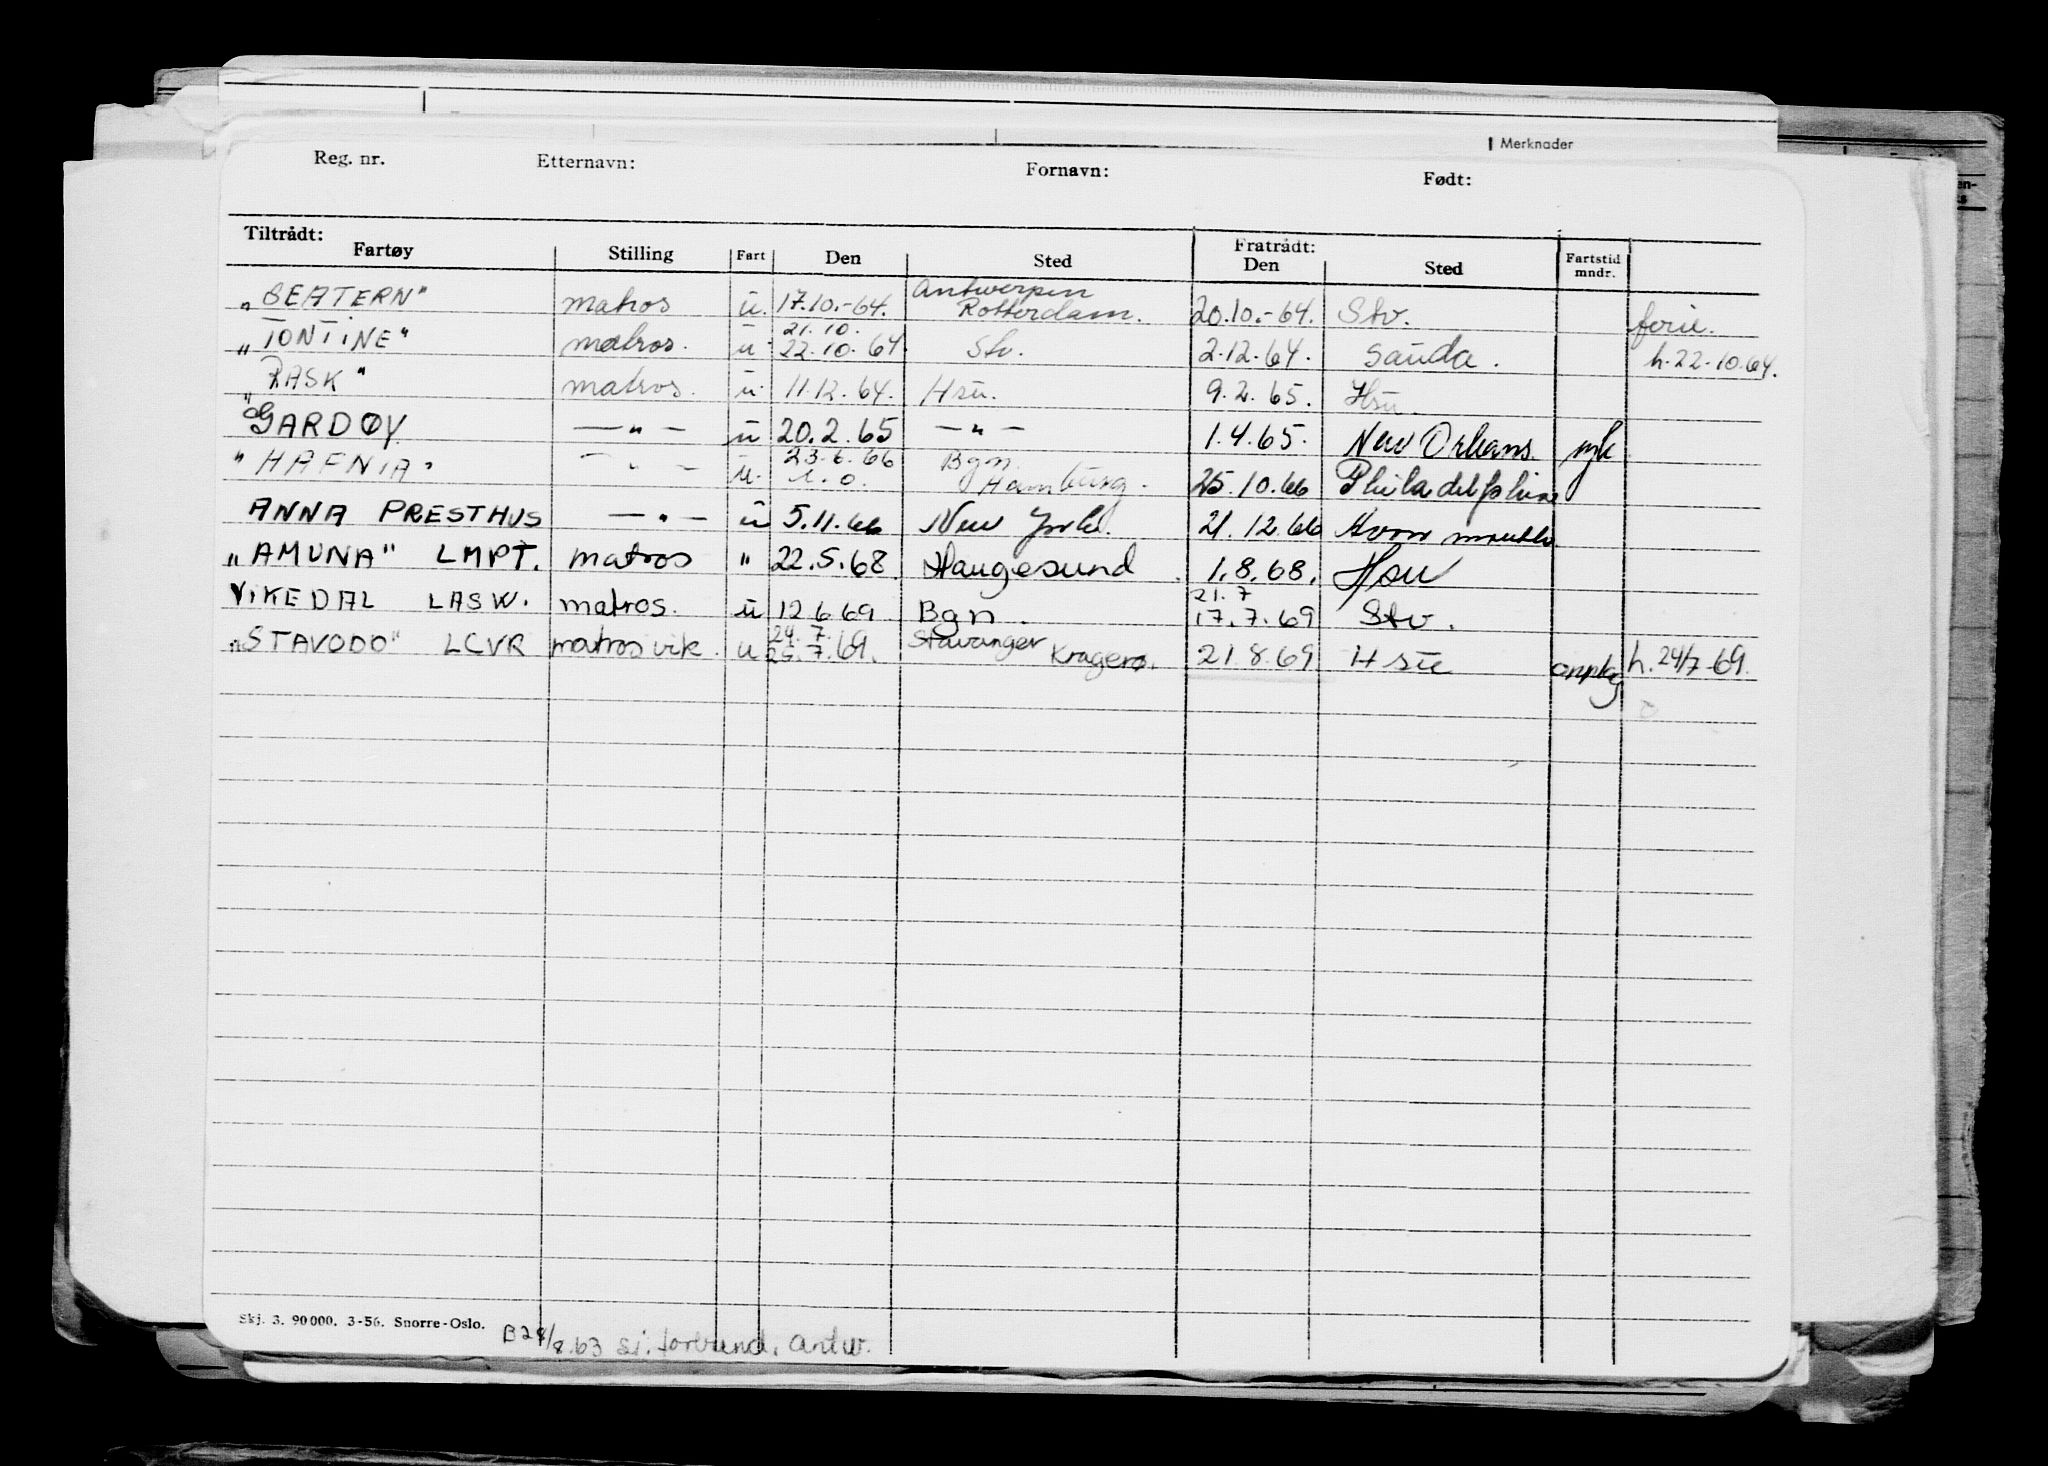 Merknader
Reg. nr. Etternavn: Fornavn: Født:
Tiltrådt: Fratrådt:
Fartøy Stilling Fart Den Sted Den Sted Fartstid mndr.
Antwerpen
„BEATERN" matros u. 17.10.-64. Rotterdam. 20.10.-64. Stv. ferie.
21.10.
„TONTINE" matros. u 22.10.64 Stv. 2.12.64. Sauda. h.22.10.64.
„RASK" matros. u. 11.12.64. Hsu. 9.2.65. Hsu.
GARDØY — " — u 20.2.65 — " — 1.4.65. New Orleans
23.6.66 Bgn.
"HAFNIA" — " — u. 1.0. Hamburg. 25.10.66 Philadelphia
ANNA PRESTHUS — " — u 5.11.66 New York. 21.12.66 Avonmouth.
„AMUNA" LMPT. matros " 22.5.68 Haugesund 1.8.68. Hsu
21.7
VIKEDAL LASW. matros. u 12.6.69 Bgn. 17.7.69 Stv.
24.7. Stavanger
„STAVODO" LCVR matros vik. u 25.7.69. Kragerø. 21.8.69 Hsu h.24/7-69.
Skj. 3. 90000. 3-56. Snorre-Oslo.
B28/8.63 sj. forbund. Antw.